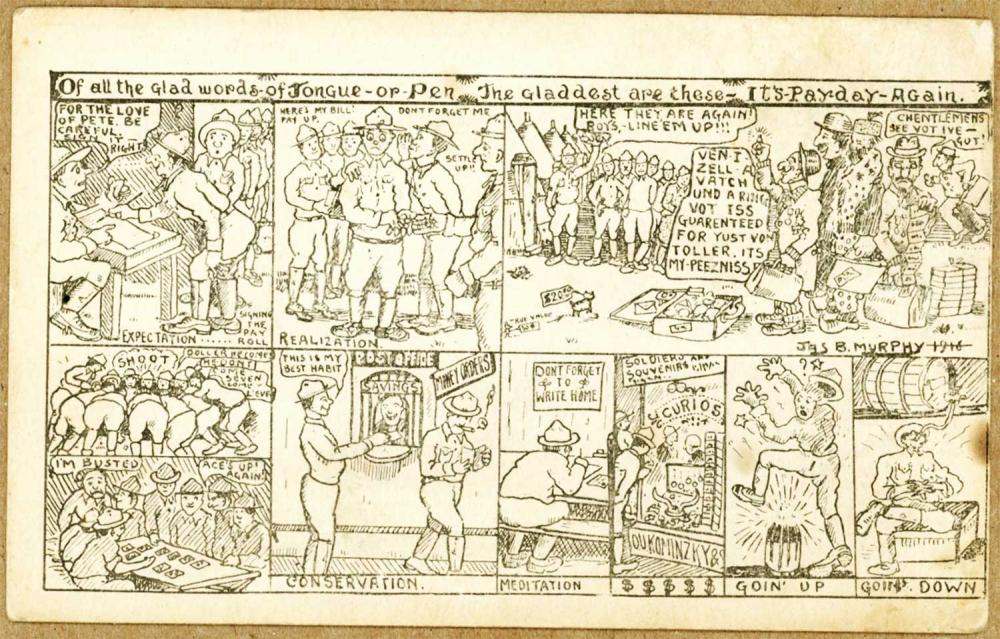 Of all the glad words-of Tongue-or-Pen The gladdest are these- IT'S-Payday-Again.
FOR THE LOVE
OF PETE. BE
CAREFUL
RIGHT!
SIGNING
THE
PAY
ROLL
EXPECTATION ......
HERE'S MY BILL!
PAY UP.
DONT FORGET ME
SETTLE
UP!!
REALIZATION.
HERE THEY ARE AGAIN!
BOYS,-LINE 'EM UP!!!
VEN-I
ZELL-A
VATCH
UND A RING
VOT ISS
GUARENTEED
FOR YUST VON
TOLLER. ITS
MY-PEEZNISS
CHENTLEMENS
SEE VOT IVE-
GUT!
$20.00
JAS B. MURPHY 1916
SHOOT
DOLLER HE COMES
SEVEN
I'M BUSTED
ACE'S UP!
AGAIN!
THIS IS MY
BEST HABIT
POST OFFICE
SAVINGS
MONEY ORDERS
CONSERVATION.
DONT FORGET
TO
WRITE HOME
MEDITATION
SOUVENIRS
CURIOS
OUKOMINZKY&S
$ $ $ $ $
GOIN' UP
GOIN'. DOWN